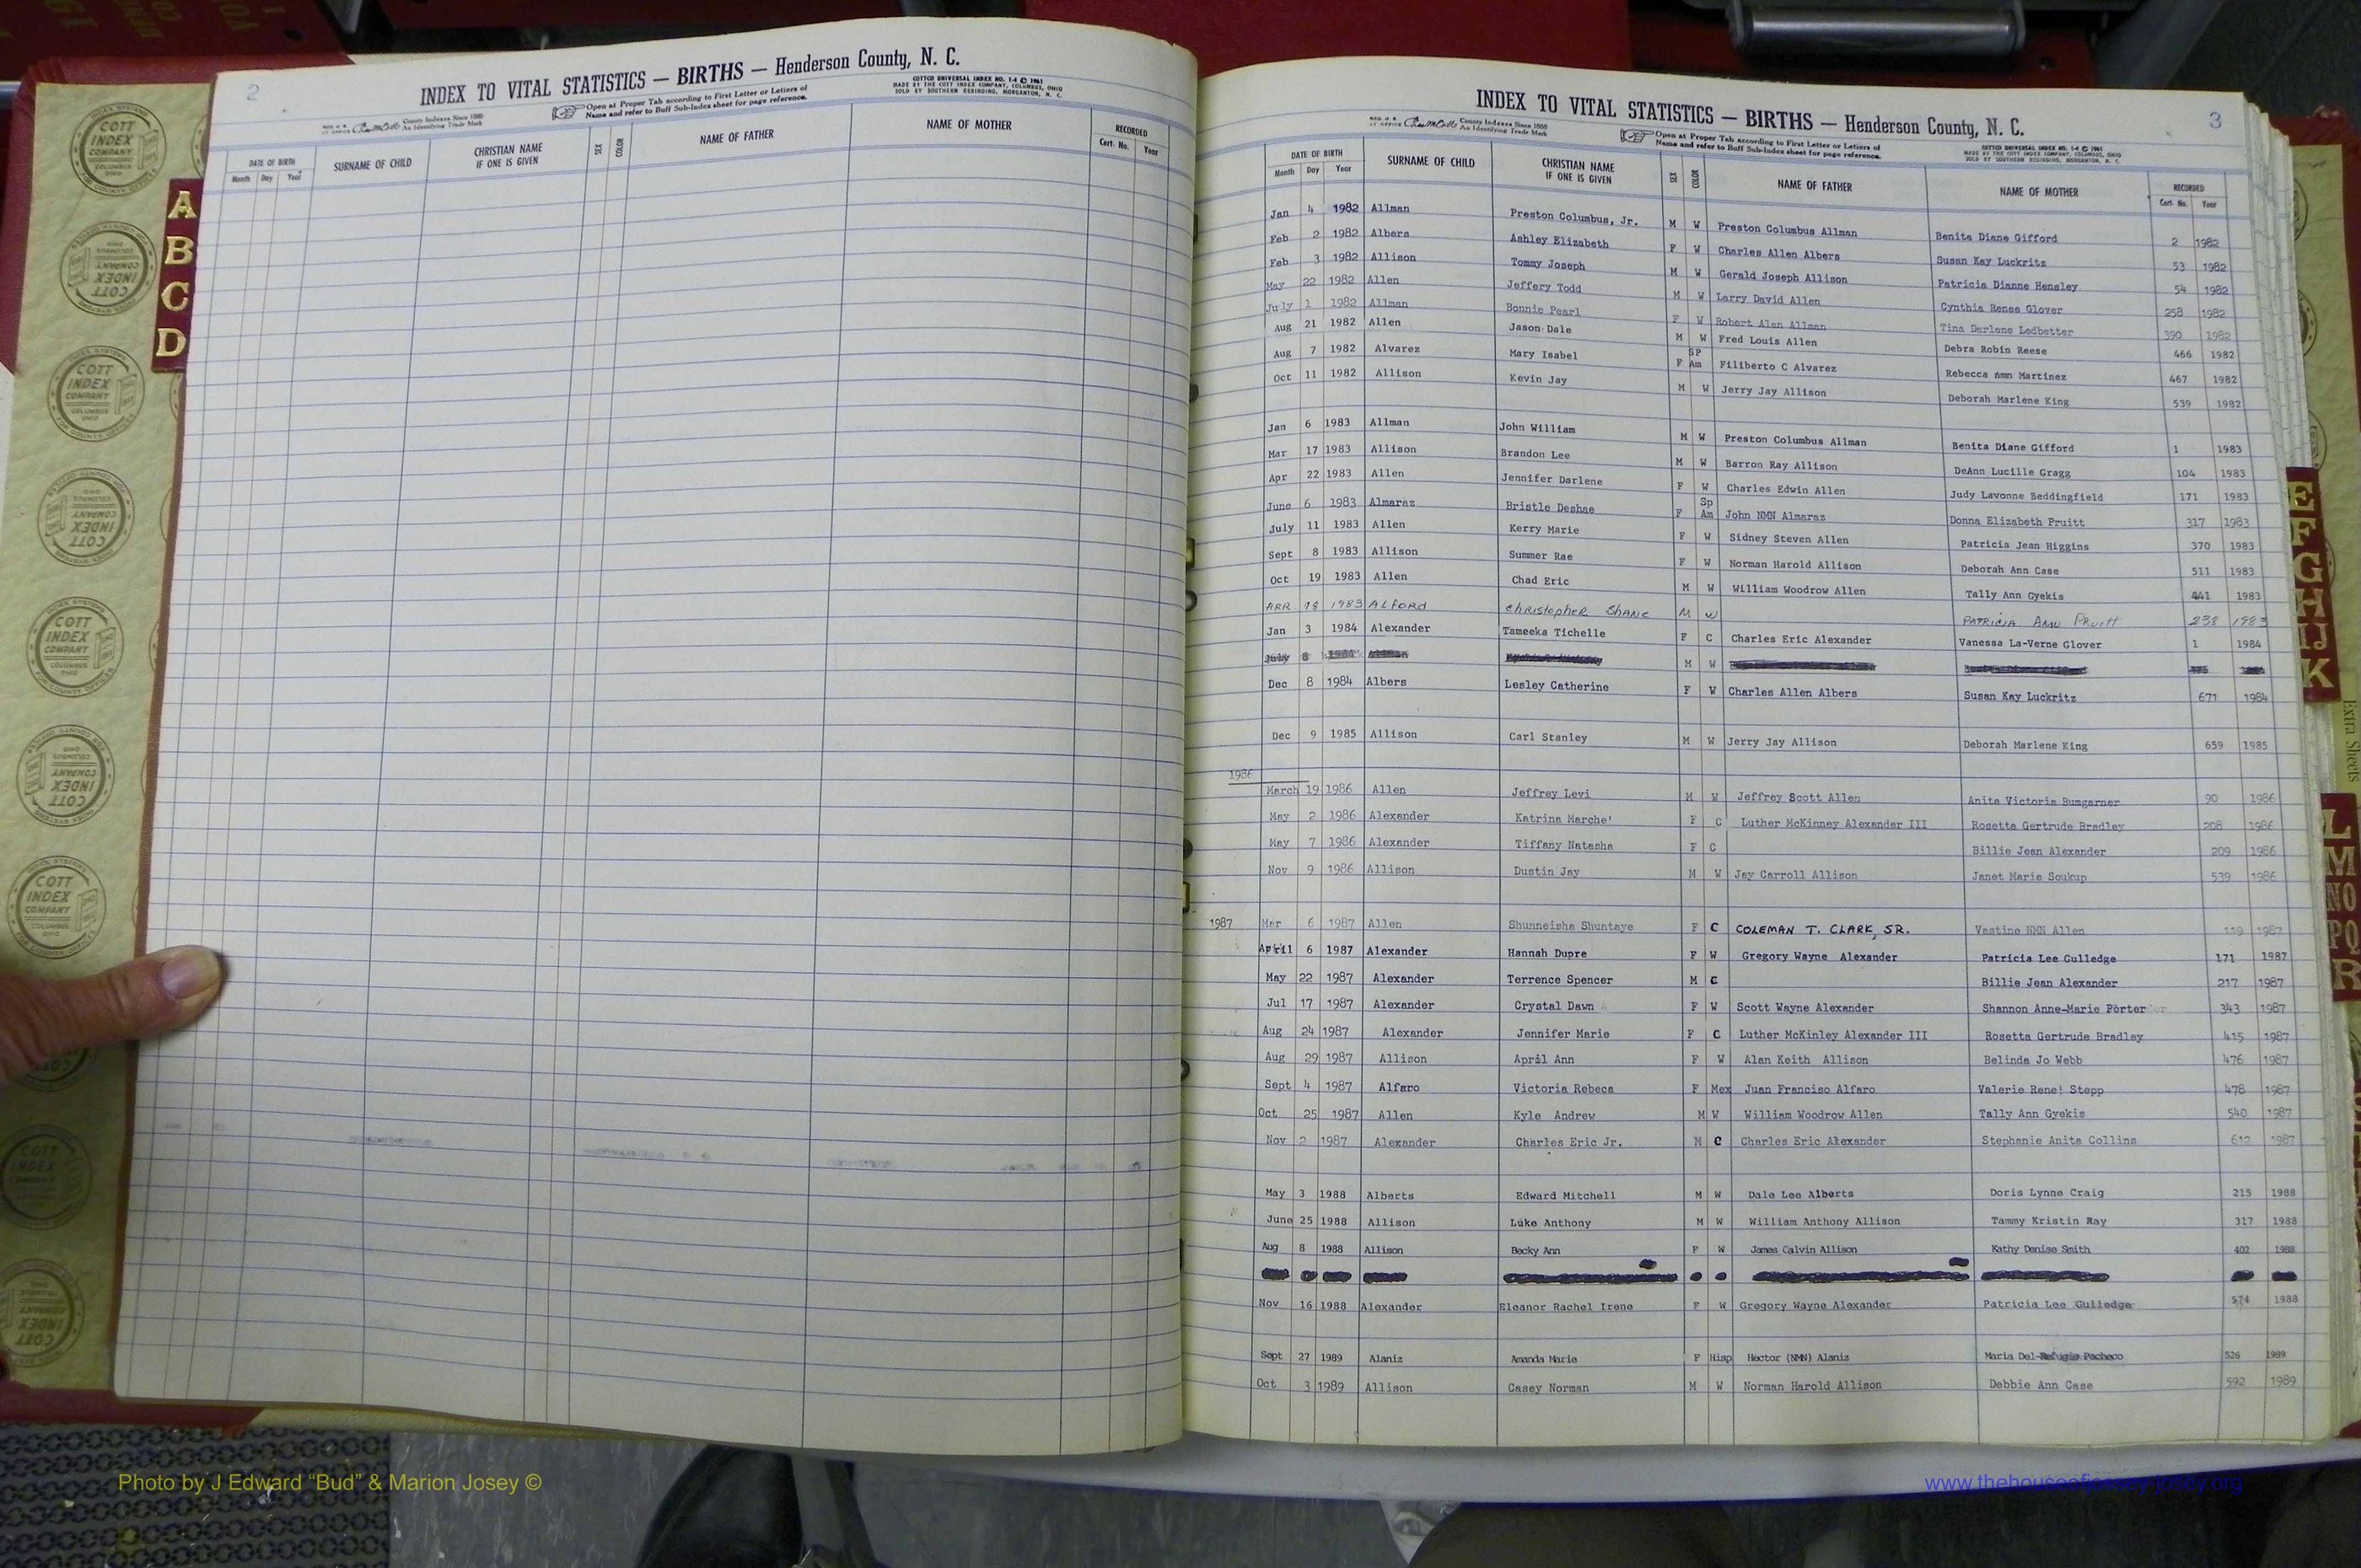 2
INDEX TO VITAL STATISTICS — BIRTHS — Henderson County, N. C.
COTTCO UNIVERSAL INDEX NO. 1-4 © 1961
MADE BY THE COTT INDEX COMPANY, COLUMBUS, OHIO
SOLD BY SOUTHERN REBINDING, MORGANTON, N. C.
County Indexes Since 1888
An Identifying Trade Mark
Open at Proper Tab according to First Letter or Letters of
Name and refer to Buff Sub-Index sheet for page reference.
DATE OF BIRTH SURNAME OF CHILD CHRISTIAN NAME IF ONE IS GIVEN SEX COLOR NAME OF FATHER NAME OF MOTHER RECORDED
Month Day Year Cert. No. Year
A
B
C
D
COTT INDEX COMPANY COLUMBUS OHIO
INDEX TO VITAL STATISTICS — BIRTHS — Henderson County, N. C.
3
County Indexes Since 1888
An Identifying Trade Mark
Open at Proper Tab according to First Letter or Letters of
Name and refer to Buff Sub-Index sheet for page reference.
COTTCO UNIVERSAL INDEX NO. 1-4 © 1961
MADE BY THE COTT INDEX COMPANY, COLUMBUS, OHIO
SOLD BY SOUTHERN REBINDING, MORGANTON, N. C.
DATE OF BIRTH SURNAME OF CHILD CHRISTIAN NAME IF ONE IS GIVEN SEX COLOR NAME OF FATHER NAME OF MOTHER RECORDED
Month Day Year Cert. No. Year
Jan 4 1982 Allman Preston Columbus, Jr. M W Preston Columbus Allman Benita Diane Gifford 2 1982
Feb 2 1982 Albers Ashley Elizabeth F W Charles Allen Albers Susan Kay Luckritz 53 1982
Feb 3 1982 Allison Tommy Joseph M W Gerald Joseph Allison Patricia Dianne Hensley 54 1982
May 22 1982 Allen Jeffery Todd M W Larry David Allen Cynthia Renee Glover 258 1982
July 1 1982 Allman Bonnie Pearl F W Robert Alan Allman Tina Darlene Ledbetter 390 1982
Aug 21 1982 Allen Jason Dale M W Fred Louis Allen Debra Robin Reese 466 1982
Aug 7 1982 Alvarez Mary Isabel F SP Am Filiberto C Alvarez Rebecca nmn Martinez 467 1982
Oct 11 1982 Allison Kevin Jay M W Jerry Jay Allison Deborah Marlene King 539 1982
Jan 6 1983 Allman John William M W Preston Columbus Allman Benita Diane Gifford 1 1983
Mar 17 1983 Allison Brandon Lee M W Barron Ray Allison DeAnn Lucille Gragg 104 1983
Apr 22 1983 Allen Jennifer Darlene F W Charles Edwin Allen Judy Lavonne Beddingfield 171 1983
June 6 1983 Almaraz Bristle Deshae F Sp Am John NMN Almaraz Donna Elizabeth Pruitt 317 1983
July 11 1983 Allen Kerry Marie F W Sidney Steven Allen Patricia Jean Higgins 370 1983
Sept 8 1983 Allison Summer Rae F W Norman Harold Allison Deborah Ann Case 511 1983
Oct 19 1983 Allen Chad Eric M W William Woodrow Allen Tally Ann Gyekis 441 1983
APR 18 1983 ALFORD Christopher Shane M W PATRICIA ANN Pruitt 238 1983
Jan 3 1984 Alexander Tameeka Tichelle F C Charles Eric Alexander Vanessa La-Verne Glover 1 1984
July 8 1984 M W
Dec 8 1984 Albers Lesley Catherine F W Charles Allen Albers Susan Kay Luckritz 671 1984
Dec 9 1985 Allison Carl Stanley M W Jerry Jay Allison Deborah Marlene King 659 1985
1986
March 19 1986 Allen Jeffrey Levi M W Jeffrey Scott Allen Anita Victoria Bumgarner 90 1986
May 2 1986 Alexander Katrina Marche' F C Luther McKinney Alexander III Rosetta Gertrude Bradley 208 1986
May 7 1986 Alexander Tiffany Natasha F C Billie Jean Alexander 209 1986
Nov 9 1986 Allison Dustin Jay M W Jay Carroll Allison Janet Marie Soukup 539 1986
1987 Mar 6 1987 Allen Shunneisha Shuntaye F C COLEMAN T. CLARK, SR. Vastine NMN Allen 119 1987
April 6 1987 Alexander Hannah Dupre F W Gregory Wayne Alexander Patricia Lee Gulledge 171 1987
May 22 1987 Alexander Terrence Spencer M C Billie Jean Alexander 217 1987
Jul 17 1987 Alexander Crystal Dawn F W Scott Wayne Alexander Shannon Anne-Marie Porter 343 1987
Aug 24 1987 Alexander Jennifer Marie F C Luther McKinley Alexander III Rosetta Gertrude Bradley 415 1987
Aug 29 1987 Allison April Ann F W Alan Keith Allison Belinda Jo Webb 476 1987
Sept 4 1987 Alfaro Victoria Rebeca F Mex Juan Franciso Alfaro Valerie Rene' Stepp 478 1987
Oct 25 1987 Allen Kyle Andrew M W William Woodrow Allen Tally Ann Gyekis 540 1987
Nov 2 1987 Alexander Charles Eric Jr. M C Charles Eric Alexander Stephanie Anita Collins 612 1987
May 3 1988 Alberts Edward Mitchell M W Dale Lee Alberts Doris Lynne Craig 215 1988
June 25 1988 Allison Luke Anthony M W William Anthony Allison Tammy Kristin Ray 317 1988
Aug 8 1988 Allison Becky Ann F W James Calvin Allison Kathy Denise Smith 402 1988
Nov 16 1988 Alexander Eleanor Rachel Irene F W Gregory Wayne Alexander Patricia Lee Gulledge 574 1988
Sept 27 1989 Alaniz Amanda Marie F Hisp Hector (NMN) Alaniz Maria Del-Refugio Pacheco 526 1989
Oct 3 1989 Allison Casey Norman M W Norman Harold Allison Debbie Ann Case 592 1989
E
F
G
H
IJ
K
Extra Sheets
L
M
NO
PQ
R
Photo by J Edward “Bud” & Marion Josey ©
www.thehouseofjossey-josey.org